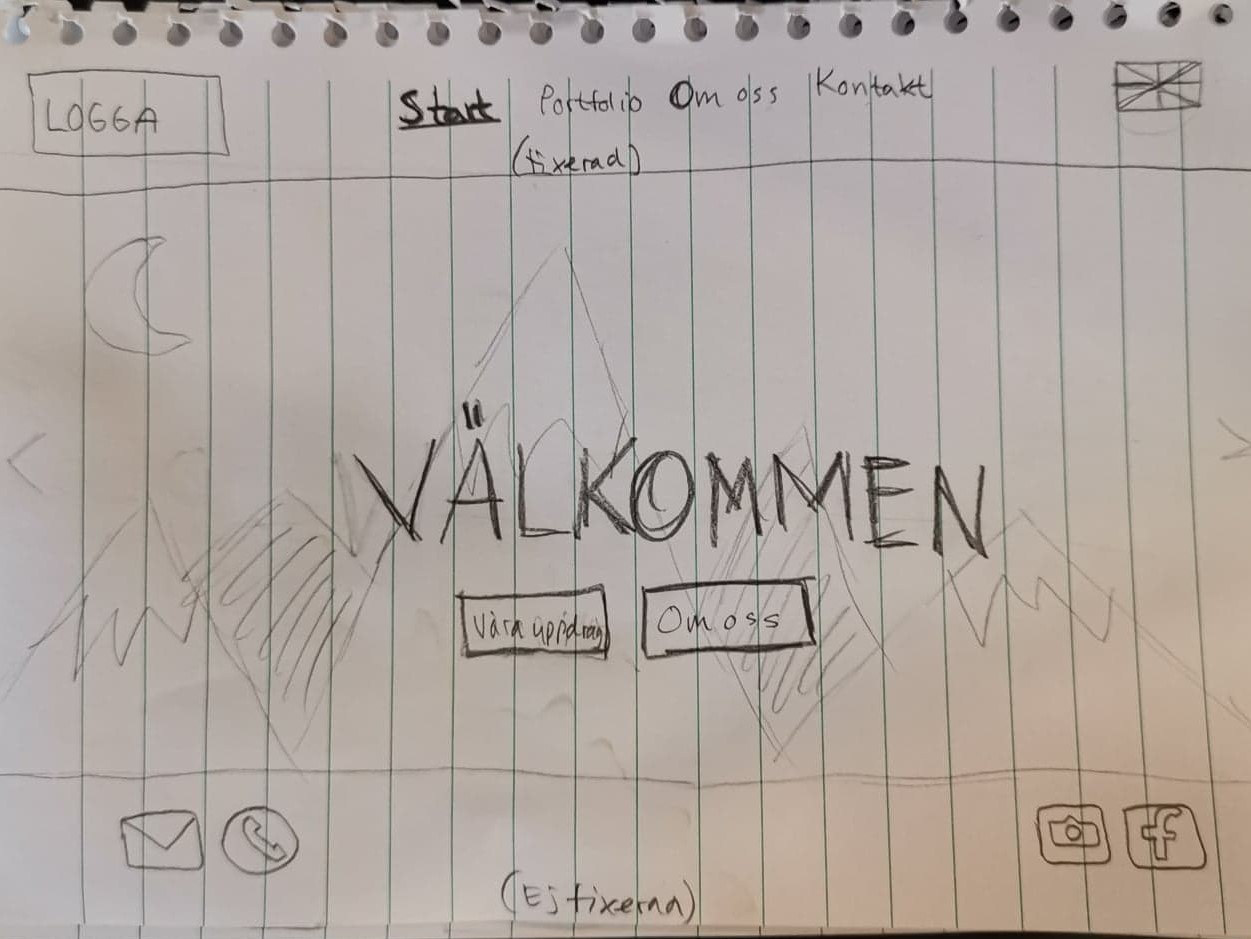 LOGGA
Start Portfolio Om oss Kontakt
(fixerad)
VÄLKOMMEN
Våra uppdrag
Om oss
f
(Ej fixerad)